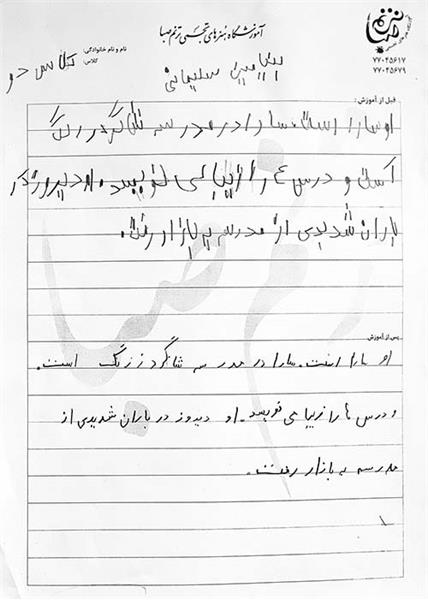 آموزشگاه هنرهای تجسمی ترنم صبا
۷۷۰۴۵۶۱۷
۷۷۰۴۵۶۷۹
نام و نام خانوادگی:
بنیامین سلیمانی
کلاس: کلاس دو
قبل از آموزش:
او سارا است سارا در مدرسه شاگرد زرنگ
است و درس ها را زیبا می نویسد. او دیروز در
باران شدیدی از مدرسه به بازار رفت.
پس از آموزش
او سارا است. سارا در مدرسه شاگرد زرنگ است.
و درس ها را زیبا می نویسد. او دیروز در باران شدیدی از
مدرسه به بازار رفت.